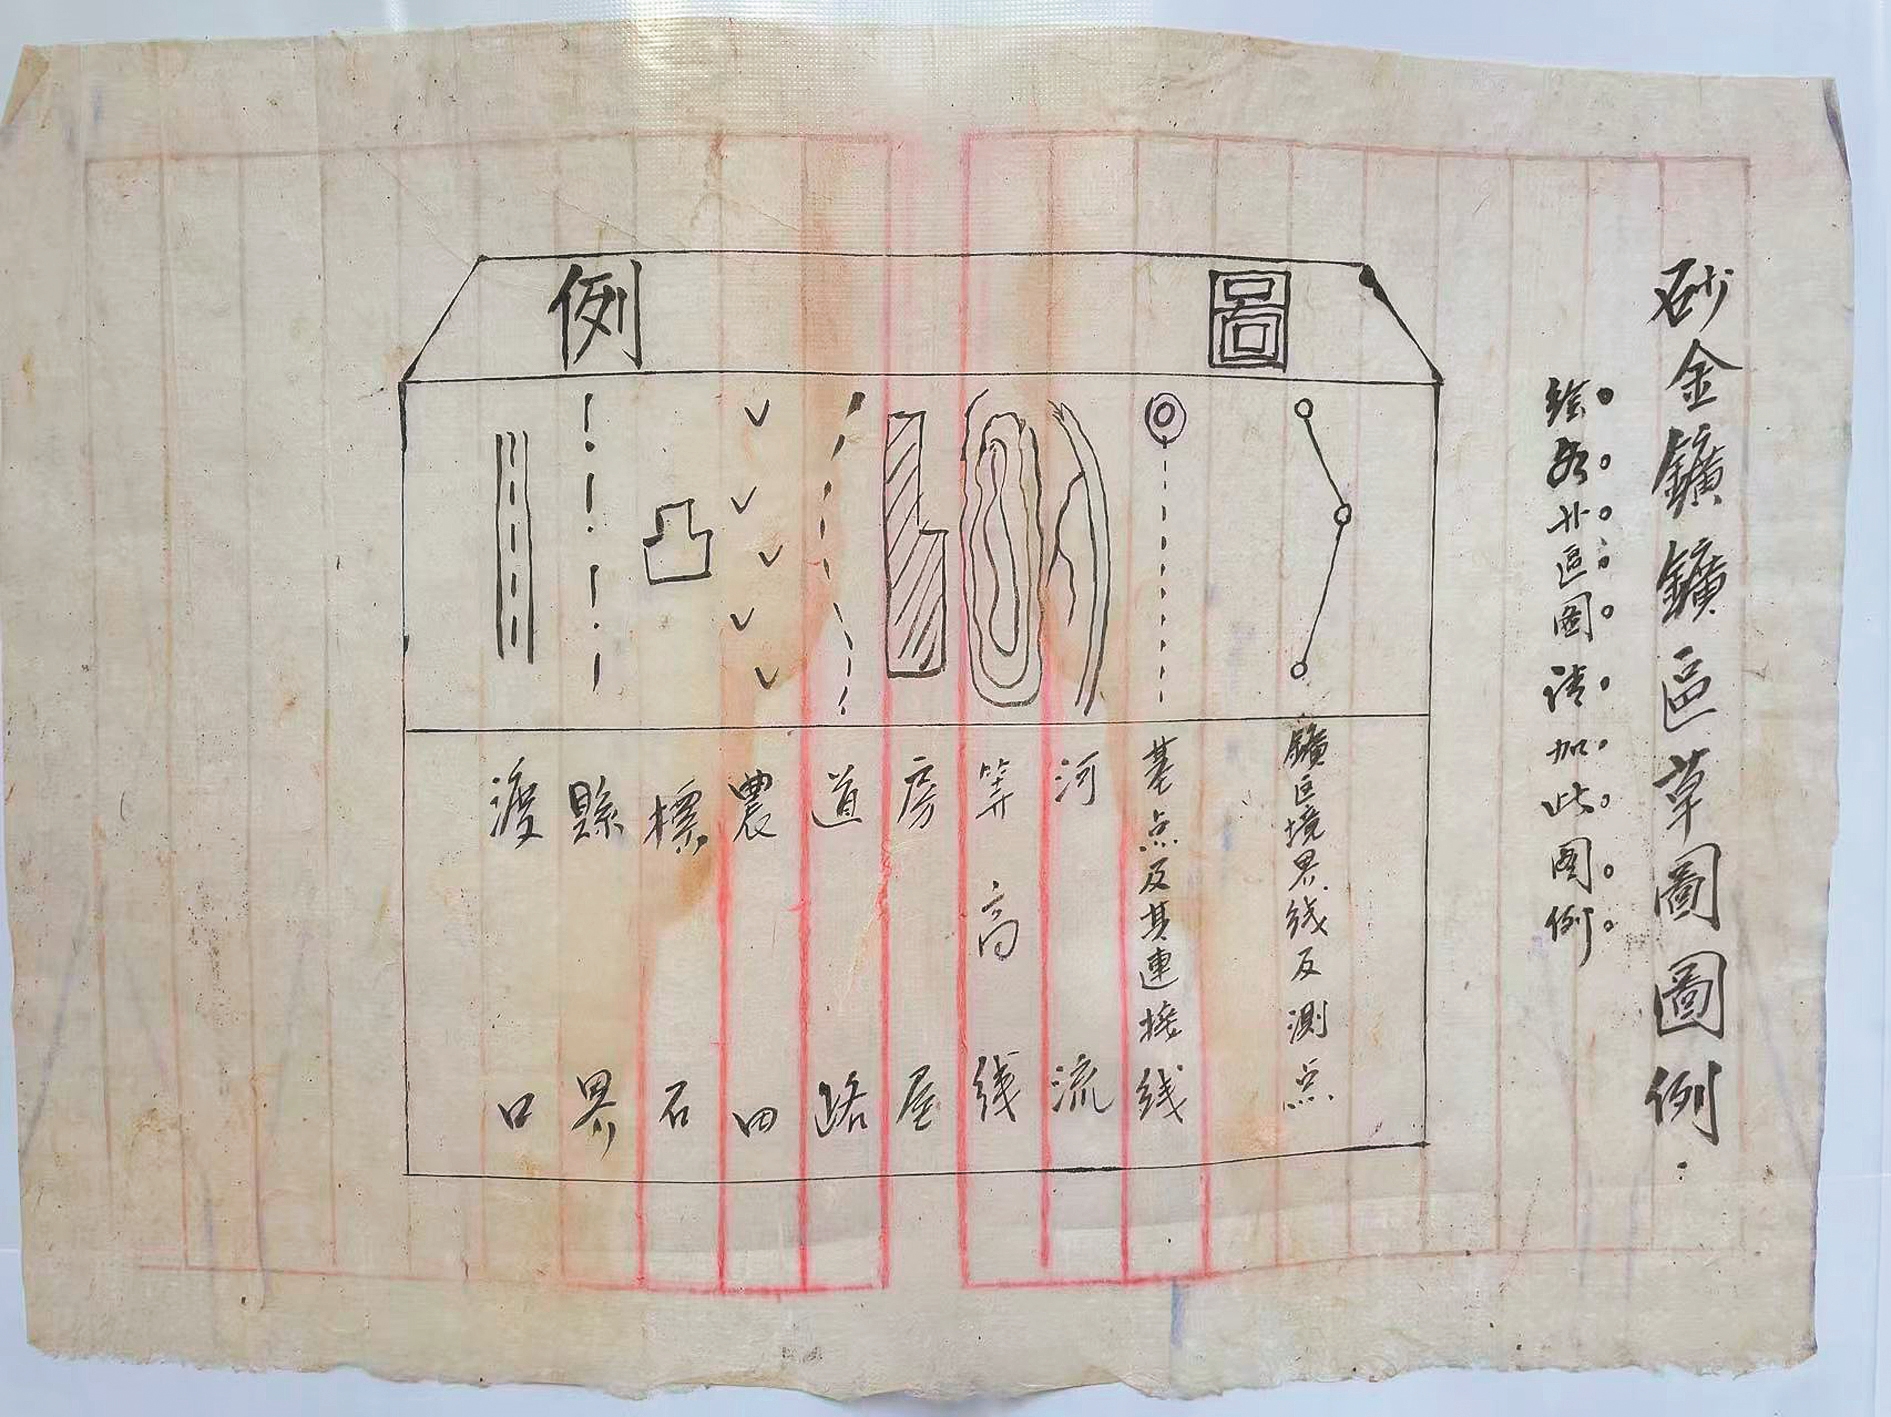 砂金鑛鑛區草圖圖例
绘各卝區圖请加此图例
圖例
鑛区境界线及測点
基点及其連接线
河流
等高线
房屋
道路
農田
標石
縣界
渡口